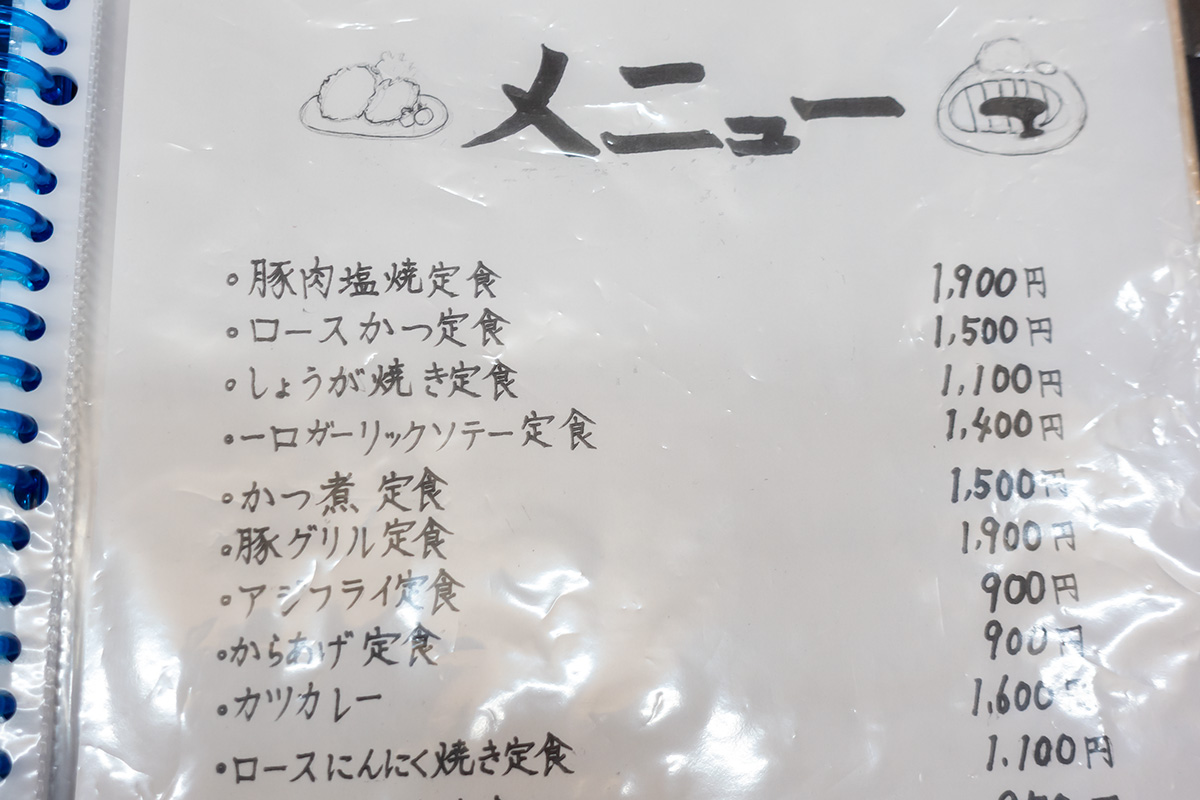 メニュー
・豚肉塩焼定食 1,900円
・ロースかつ定食 1,500円
・しょうが焼き定食 1,100円
・一口ガーリックソテー定食 1,400円
・かつ煮定食 1,500円
・豚グリル定食 1,900円
・アジフライ定食 900円
・からあげ定食 900円
・カツカレー 1,600円
・ロースにんにく焼き定食 1.100円